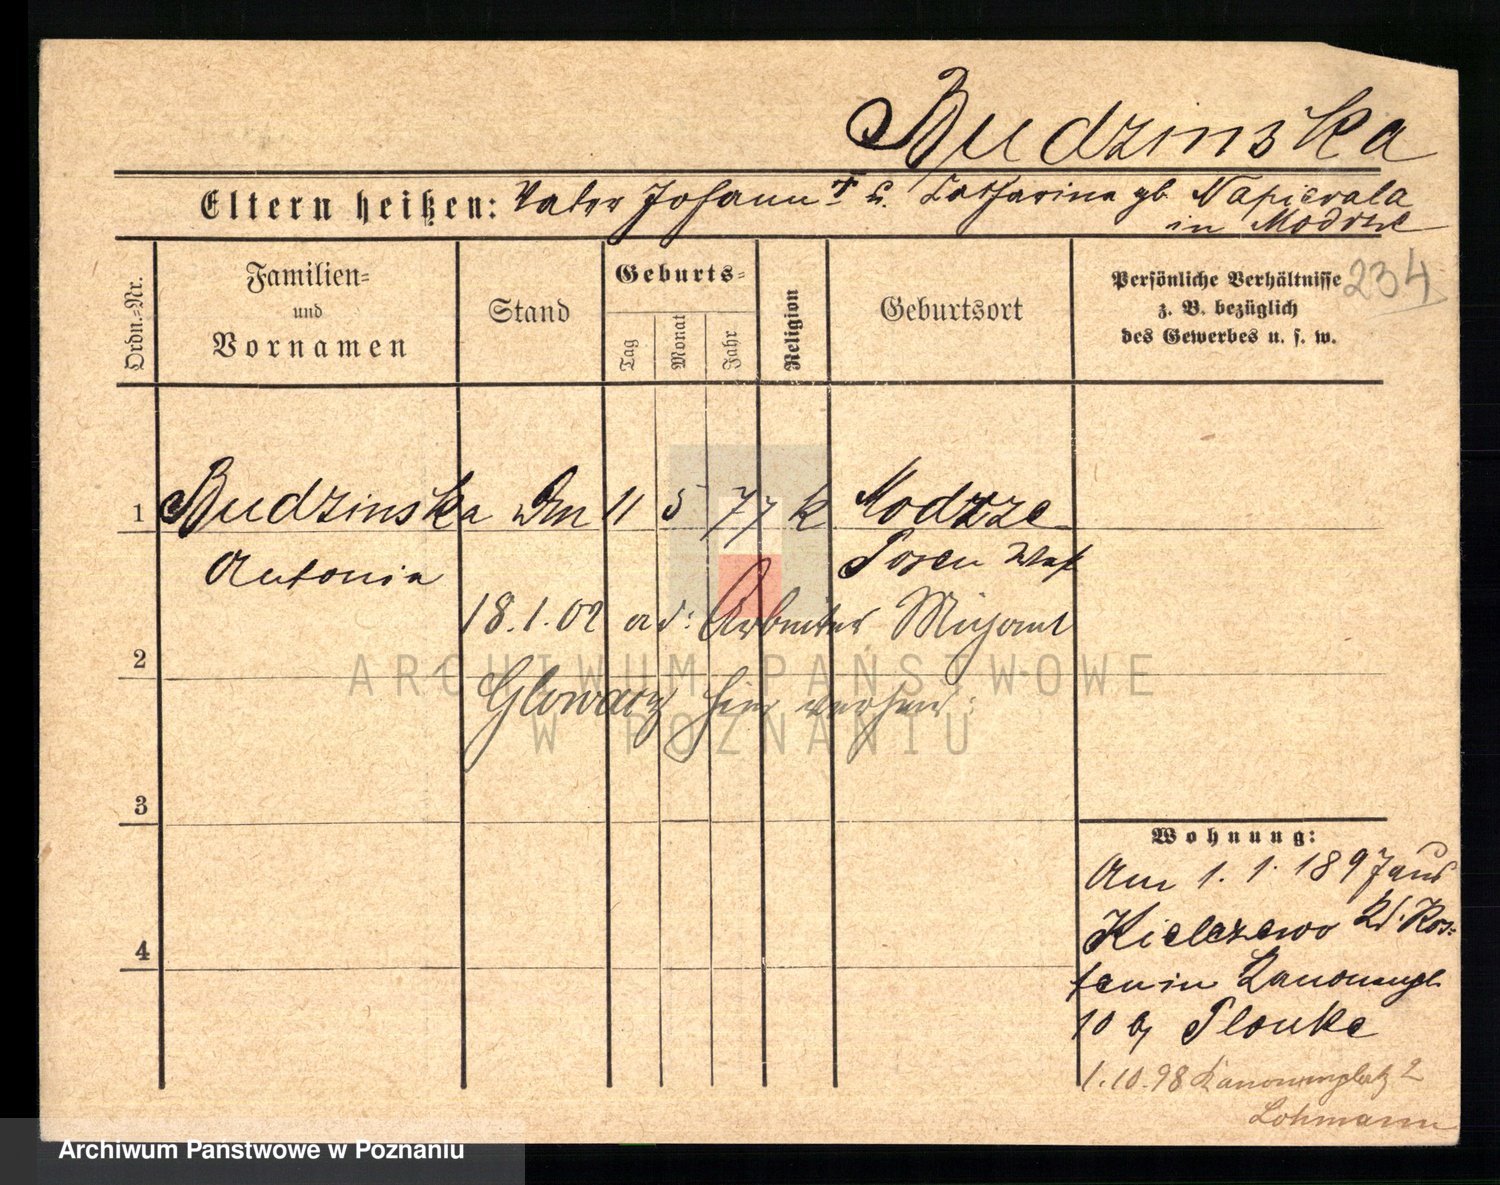 Budzinska
Eltern heißen: Vater Johann † u. Catharina gb Napierala
in Modrze
234
Ordn.-Nr.
Familien-
und
Vornamen
Stand
Geburts-
Tag
Monat
Jahr
Religion
Geburtsort
Persönliche Verhältnisse
z. B. bezüglich
des Gewerbes u. s. w.
1 Budzinska Dm 11 5 77 k Modrze
Antonia Posen West
18.1.02 ad: Arbeiter
2
Glowacz hier verheir:
ARCHIWUM PAŃSTWOWE
W POZNANIU
3
4
Wohnung:
Am 1. 1. 1897 aus
Kielczewo Kr. Kos-
ten in Kanonenpl
10 bj Plonke
1.10.98 Kanonenplatz 2
Lohmann
Archiwum Państwowe w Poznaniu